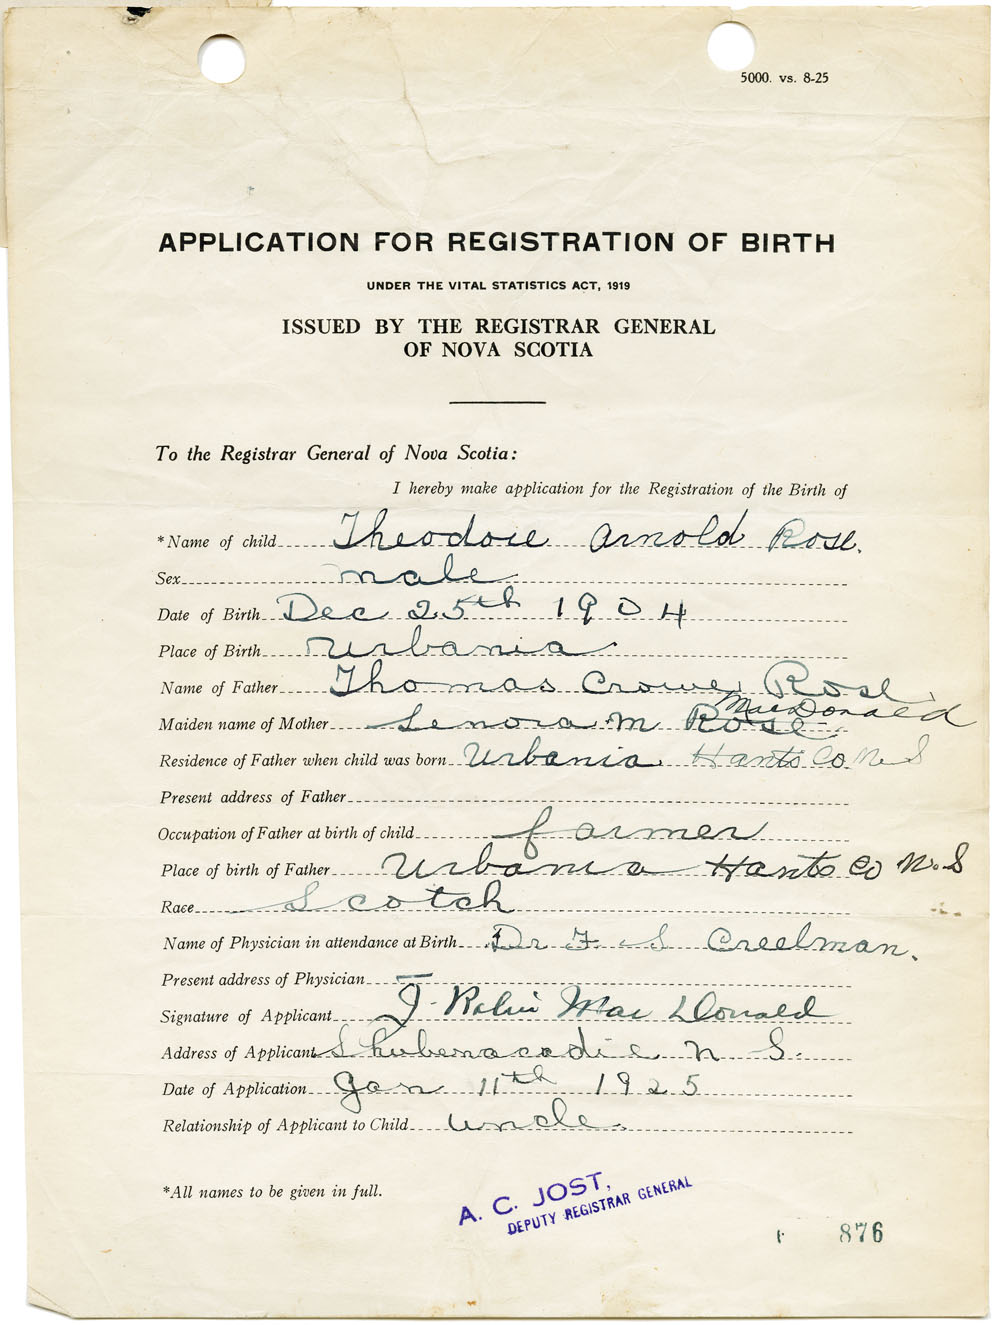 5000. vs. 8-25
APPLICATION FOR REGISTRATION OF BIRTH
UNDER THE VITAL STATISTICS ACT, 1919
ISSUED BY THE REGISTRAR GENERAL
OF NOVA SCOTIA
To the Registrar General of Nova Scotia:
I hereby make application for the Registration of the Birth of
*Name of child Theodore Arnold Rose.
Sex male
Date of Birth Dec 25th 1904
Place of Birth Urbania
Name of Father Thomas Crowe Rose
MacDonald
Maiden name of Mother Lenora M Rose
Residence of Father when child was born Urbania Hants Co. N S
Present address of Father
Occupation of Father at birth of child farmer
Place of birth of Father Urbania Hants Co N.S
Race Scotch
Name of Physician in attendance at Birth Dr F S Creelman.
Present address of Physician
Signature of Applicant J. Robin MacDonald
Address of Applicant Shubenacadie N S.
Date of Application Jan 11th 1925
Relationship of Applicant to Child uncle.
*All names to be given in full.
A. C. JOST,
DEPUTY REGISTRAR GENERAL
876